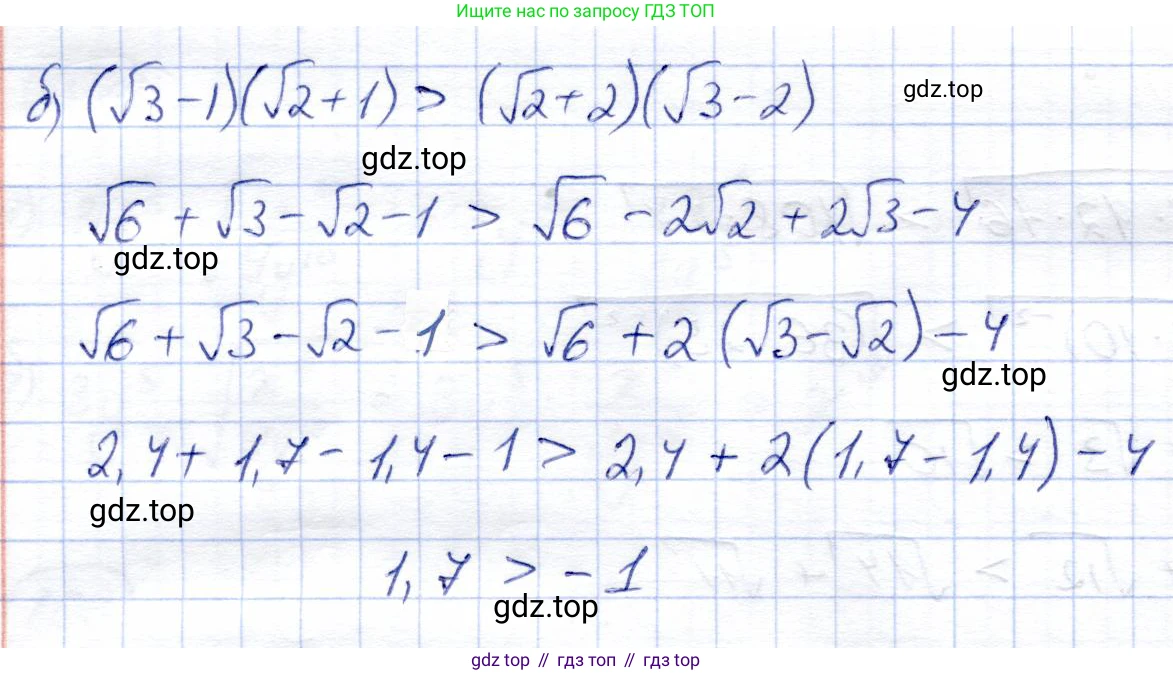 Ищите нас по запросу ГДЗ ТОП
б) (√3 - 1)(√2 + 1) > (√2 + 2)(√3 - 2)
gdz.top
gdz.top
√6 + √3 - √2 - 1 > √6 - 2√2 + 2√3 - 4
gdz.top
√6 + √3 - √2 - 1 > √6 + 2 (√3 - √2) - 4
gdz.top
2,4 + 1,7 - 1,4 - 1 > 2,4 + 2(1,7 - 1,4) - 4
gdz.top
1,7 > - 1
gdz.top
gdz top // гдз топ // гдз top